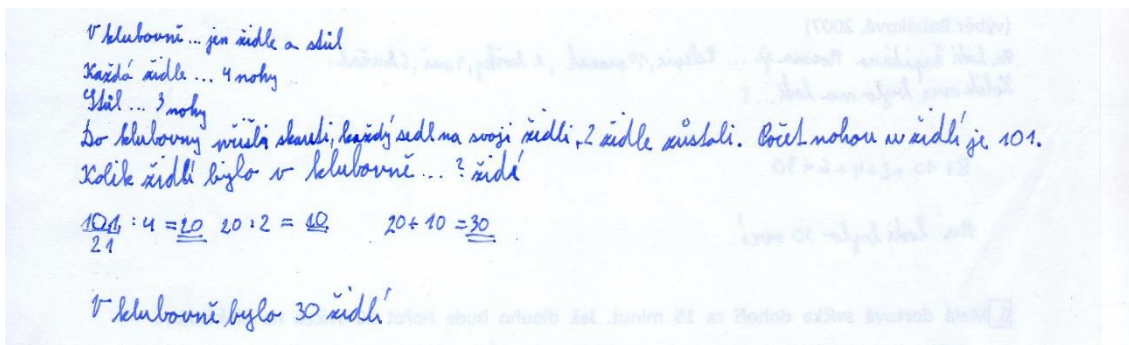 V klubovně... jen židle a stůl
Každá židle ... 4 nohy
Stůl ... 3 nohy
Do klubovny přišli skauti, každý sedl na svoji židli, 2 židle zůstali. Počet nohou u židlí je 101.
Kolik židlí bylo v klubovně ... ? židlí
101 : 4 = 20 20 : 2 = 10 20 + 10 = 30
21
V klubovně bylo 30 židlí